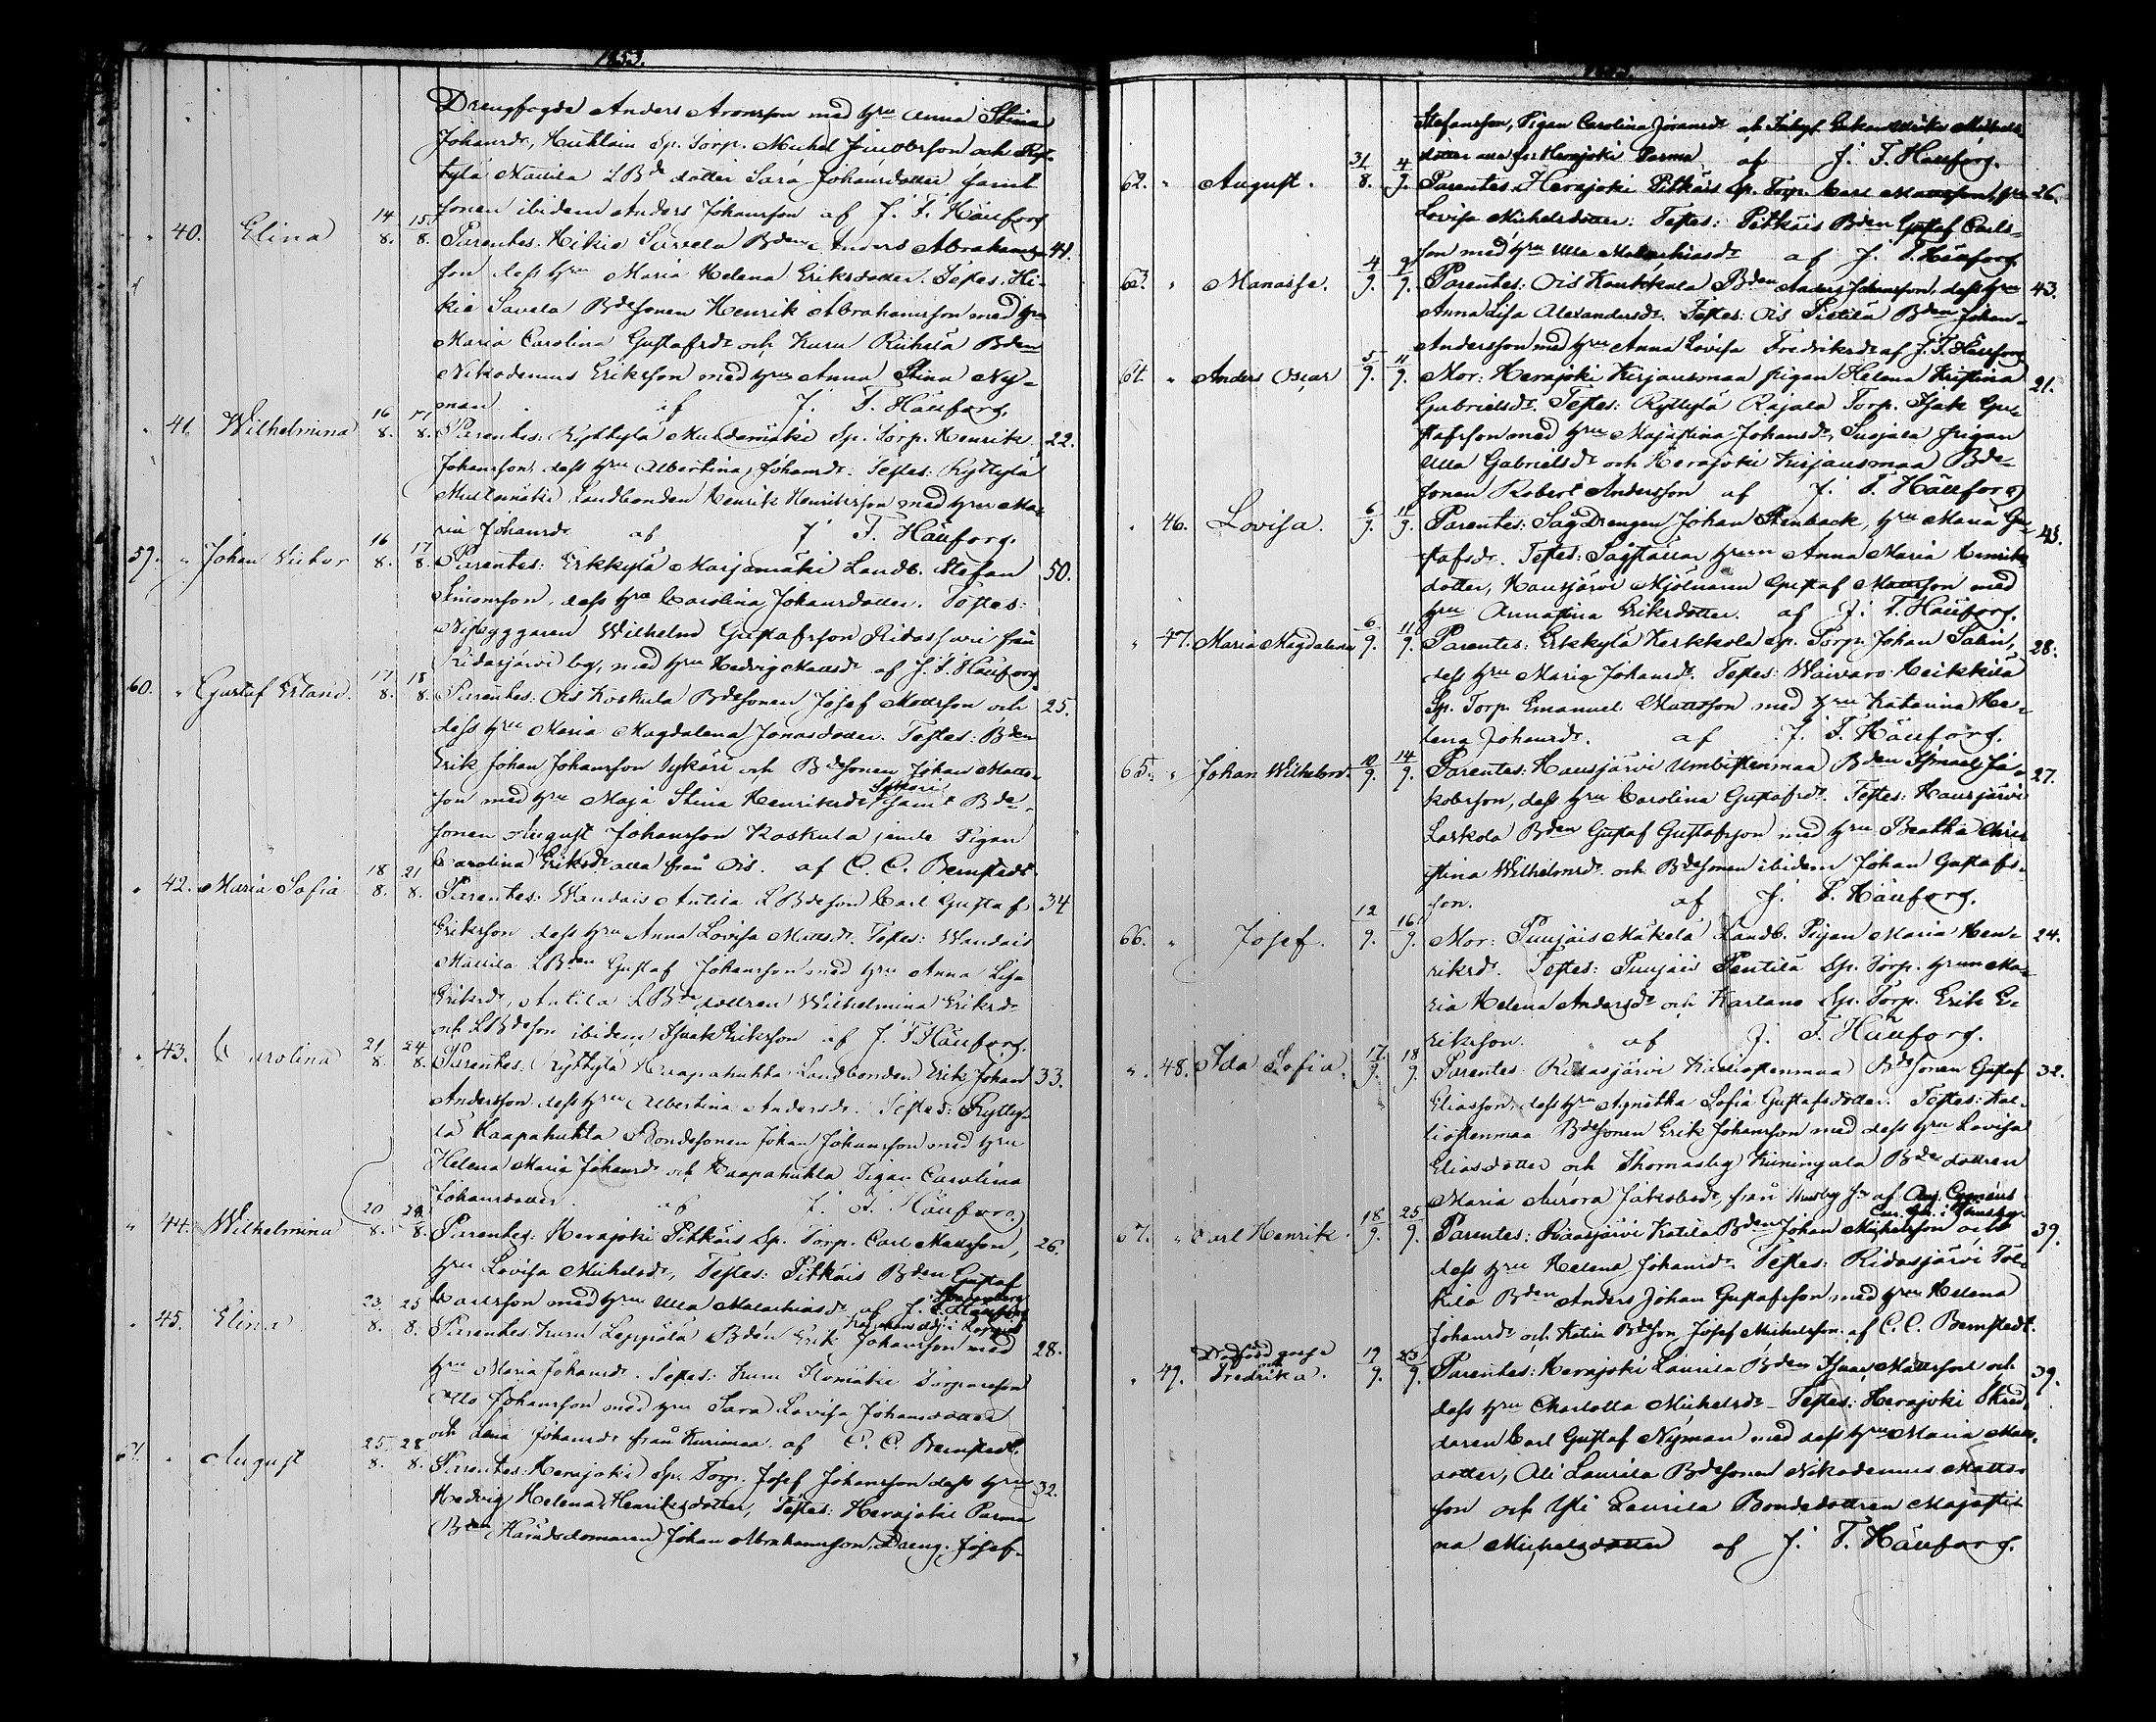 1853.
Drengfogde Anders Aronsson med hru Anna Stina
Johansdr, Sp. Torp. Michel Jacobsson och Ryt-
tylä Mattila LBde dotter Sara Johansdotter samt
sonen ibidem Anders Johansson af J. T. Hällforg
" 40. Elina 14/8. 15/8. Parentes: Hikiä Savela Bden Anders Abraham- 41.
son dess hru Maria Helena Eriksdotter. Testes: Hi-
kiä Savela Bdesonen Henrik Abrahamsson med hru
Maria Carolina Gustafsdr och Kuru Bden
Nikodemus Eriksson med hru Anna Stina Ny-
man. af J. T. Hällforg.
" 41. Wilhelmina 16/8. 17/8. Parentes: Ryttylä Multamäki Sp. Torp. Henrik 22.
Johansson, dess hru Albertina Johansdr. Testes: Ryttylä
Multamäki Landbonden Henrik Henriksson med hru Ma-
ria Johansdr af J. T. Hällforg.
59. " Johan Victor 16/8. 17/8. Parentes: Erkkylä Marjamäki Landb. Stefan 50.
Simonsson, dess hru Carolina Johansdotter. Testes:
Wilhelm Gustafsson från
Ridasjärvi by, med hru Hedvig Mattsdr af J. T. Hällforg
60. " Gustaf Erland. 17/8. 18/8. Parentes: Ois Koskula Bdesonen Josef Mattsson och 25.
dess hru Maria Magdalena Jonasdotter. Testes: Bden
Erik Johan Johansson Sykäri och Bdesonen Johan Matts-
son med hru Maja Stina Henriksdr Sykäri samt Bde-
sonen August Johansson Koskula jemte Pigan
Carolina Eriksdr alla från Ois. af C. C. Bernstedt.
" 42. Maria Sofia 18/8. 21/8. Parentes: Wandais Antila LBdeson Carl Gustaf 34
Eriksson dess hru Anna Lovisa Mattsdr. Testes: Wandais
Mattila LBden Gustaf Johansson med hru Anna Lisa
Eriksdr, Antila LBde dottren Wilhelmina Eriksdr
och LBdeson ibidem Isaak Eriksson af J. T. Hällforg.
" 43. Carolina 21/8. 24/8. Parentes: Ryttylä Haapahuhta Landbonden Erik Johan 33.
Andersson dess hru Albertina Andersdr. Testes: Ryttyl-
lä Haapahuhta Bondesonen Johan Johansson med hru
Helena Maria Johansdr och Haapahuhta Pigan Carolina
Johansdotter. af J. T. Hällforg.
" 44. Wilhelmina 20/8. 24/8. Parentes: Herajoki Pitkäis Sp. Torp. Carl Mattsson, 26.
hru Lovisa Michelsdr, Testes: Pitkäis Bden Gustaf
Carlsson med hru Ulla Malachiasdr af J.
" 45. Elina 23/8. 25/8. Parentes: Kuru Leppälä Bden Erik Johansson med 28.
hru Maria Johansdr. Testes: Kuru Torpareson
Otto Johansson med hru Sara Lovisa Johansdotter
och Lena Johansdr från Kurimaa. af C. C. Bernstedt.
61. " August 25/8. 28/8. Parentes: Herajoki Sp. Torp. Josef Johansson dess hru 32.
Hedvig Helena Henriksdotter, Testes: Herajoki Parma
Bden Häradsdomaren Johan Abrahamsson, Dreng. Josef
Stefansson, Pigan Carolina Johansdr och Enkan Ulrika Michels-
dotter alla fr Herajoki Parma. af J. T. Hällforg.
62. " August. 31/8. 4/9. Parentes. Herajoki Pitkäis Sp. Torp. Carl Mattsson, hru 26.
Lovisa Michelsdotter. Testes: Pitkäis Bden Gustaf Carls-
son med hru Ulla Malachiasdr af J. T. Hällforg.
63. " Manasse. 4/9. 9/9. Parentes: Ois Kaukkala Bden Anders Johansson, dess hru 43.
Anna Lisa Alexandersdr. Testes: Ois Pietilä Bden Johan
Andersson med hru Anna Lovisa Fredriksdr af J. T. Hällforg
64. " Anders Oscar 5/9. 11/9. Mor: Herajoki Kirjausmaa pigan Helena Kristina 21.
Gabrielsdr. Testes: Ryttylä Rajala Torp. Isak Gu-
stafsson med hru Majastina Johansdr, Susjala pigan
Ulla Gabrielsdr och Herajoki Kirjausmaa Bde-
sonen Robert Andersson af J. T. Hällforg
" 46. Lovisa. 6/9. 11/9. Parentes: Sag Drengen Johan Stenback, hru Maria Gu- 45.
stafsdr. Testes: hrun Anna Maria Henriks
dotter, Hausjärvi Mjölnaren Gustaf Mattsson med
hru Annastina Eriksdotter. af J. T. Hällforg.
" 47. Maria Magdalena 6/9. 11/9. Parentes: Erkkylä Kerkkola Sp. Torp. Johan Salin, 28.
dess hru Maria Johansdr. Testes: Waivaro Heikkilä
Sp. Torp. Emanuel Mattsson med hru Katarina He-
lena Johansdr. af J. T. Hällforg.
65. " Johan Wilhelm. 10/9. 14/9. Parentes: Hausjärvi Umbistenmaa Bden Ismael Ja- 27.
kobsson, dess hru Carolina Gustafsdr. Testes: Hausjärvi
Laskola Bden Gustaf Gustafsson med hru Beatha Chri-
stina Wilhelmsdr och Bdesonen ibidem Johan Gustafs-
son. af J. T. Hällforg.
66. " Josef. 12/9. 16/9. Mor: Puujais Mäkelä Landb. Pigan Maria Hen- 24.
riksdr. Testes: Puujais Pentilä Sp. Torp. hrun Ma-
ria Helena Andersdr och Kartano Sp. Torp. Erik E-
riksson. af J. T. Hällforg.
" 48. Ida Sofia. 17/9. 18/9. Parentes: Ridasjärvi Kaliostenmaa Bdesonen Gustaf 32.
Eliasson, dess hru Agnetha Sofia Gustafsdotter. Testes: Kal-
liostenmaa Bdesonen Erik Johansson med dess hru Lovisa
Eliasdotter och Thomasby Kuningala Bde dottren
Maria Aurora Jakobsdr, från af Aug. Cygnæus
67. " Carl Henrik. 18/9. 25/9. Parentes: Ridasjärvi Katila Bden Johan Michelsson och 39.
dess hru Helena Johansdr. Testes: Ridasjärvi Töl-
kilä Bden Anders Johan Gustafsson med hru Helena
Johansdr och Katila Bdeson Josef Michelsson. af C. C. Bernstedt.
" 49. Fredrika. 19/9. 25/9. Parentes: Herajoki Laurila Bden Isaac Mattsson och 39.
dess hru Charlotta Michelsdr. Testes: Herajoki Skräd-
daren Carl Gustaf Nyman med dess hru Maria Matts-
dotter, Ali Laurila Bdesonen Nikodemus Matts-
son och Yli Laurila Bondedottren Majasti-
na Michelsdotter af J. T. Hällforg.